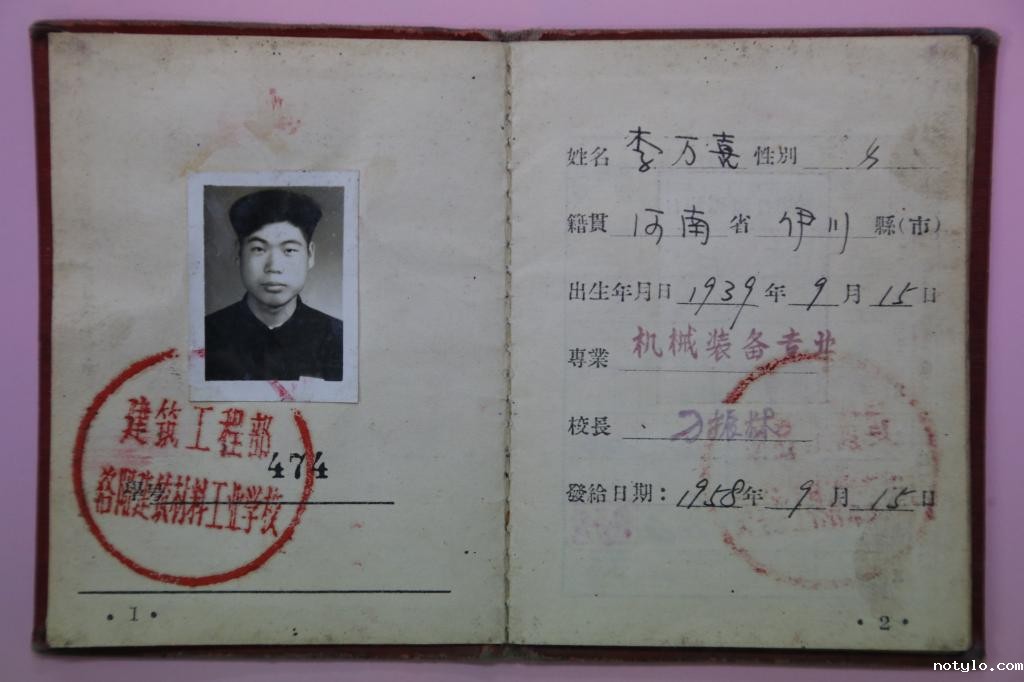 建筑工程部
474
學号
洛阳建筑材料工业学校
· 1 ·
姓名 李万喜 性別
籍貫 河南 省 伊川 縣(市)
出生年月日 1939 年 9 月 15 日
机械装备专业
專業
校長 刁振林
發給日期：1958 年 9 月 15 日
· 2 ·
notylo.com